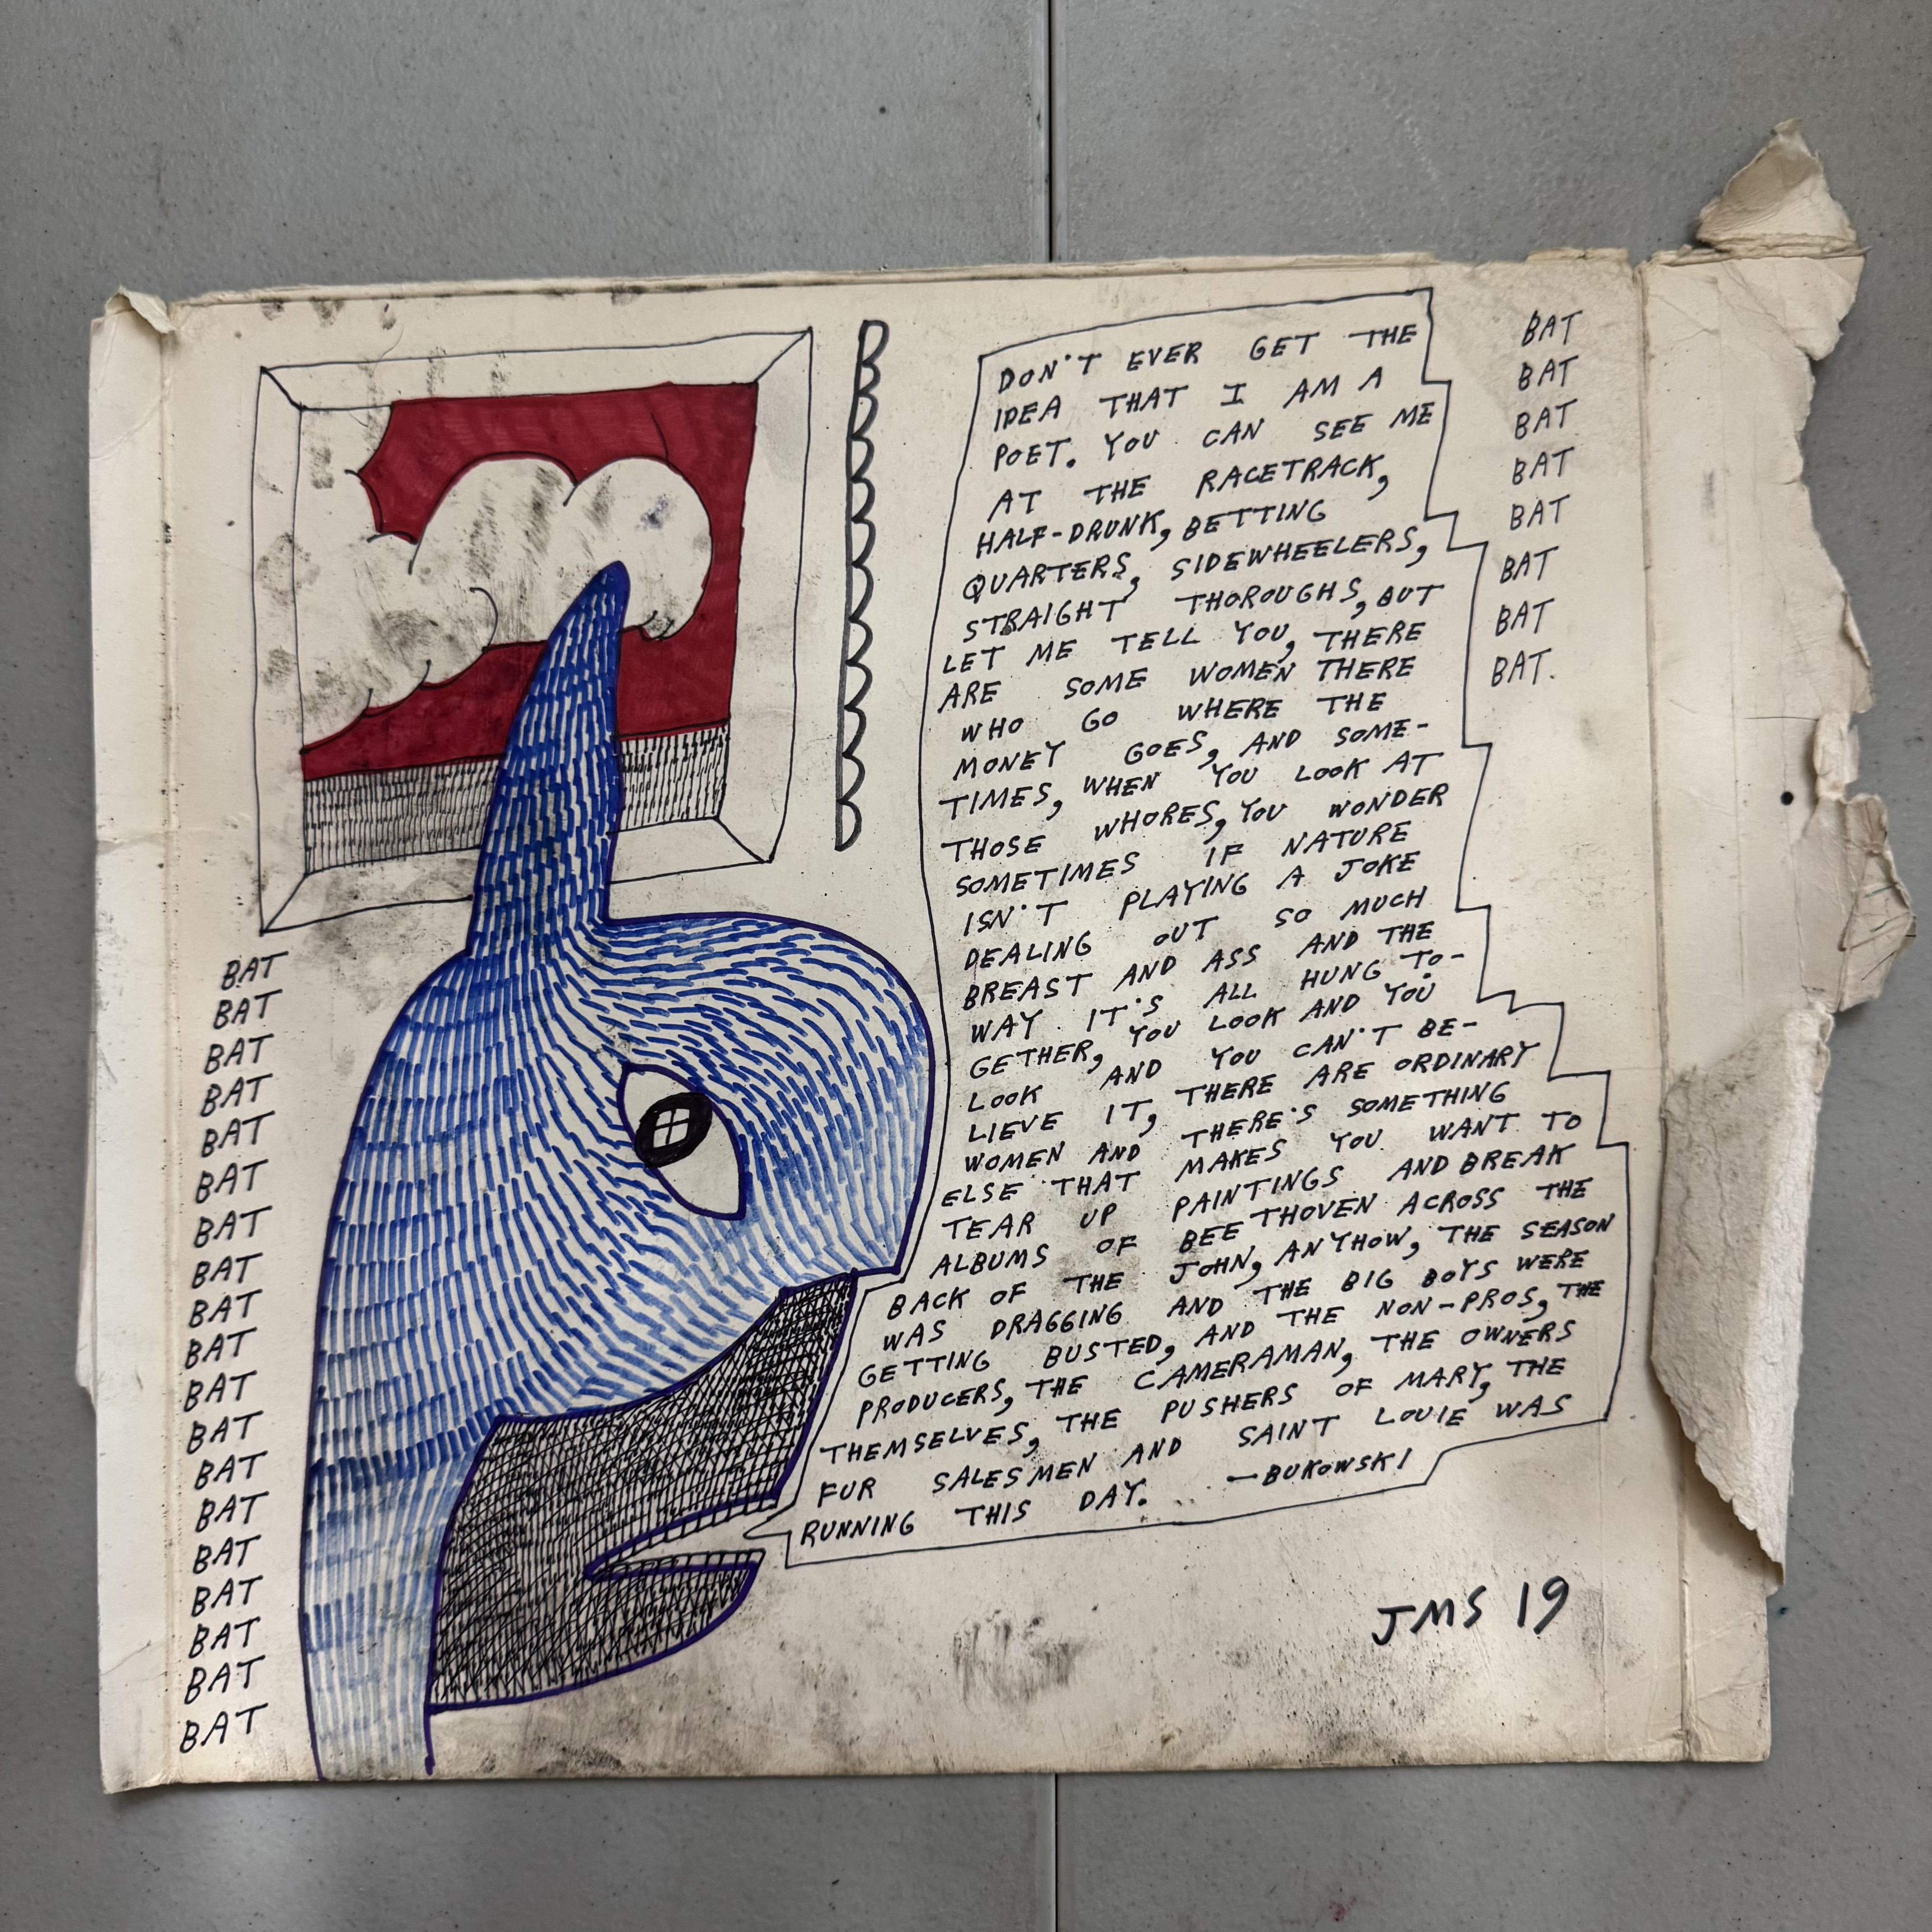 BAT
BAT
BAT
BAT
BAT
BAT
BAT
BAT
BAT
BAT
BAT
BAT
BAT
BAT
BAT
BAT
BAT
BAT
BAT
DON'T EVER GET THE
IDEA THAT I AM A
POET. YOU CAN SEE ME
AT THE RACETRACK,
HALF-DRUNK, BETTING
QUARTERS, SIDEWHEELERS,
STRAIGHT THOROUGHS, BUT
LET ME TELL YOU, THERE
ARE SOME WOMEN THERE
WHO GO WHERE THE
MONEY GOES, AND SOME-
TIMES, WHEN YOU LOOK AT
THOSE WHORES, YOU WONDER
SOMETIMES IF NATURE
ISN'T PLAYING A JOKE
DEALING OUT SO MUCH
BREAST AND ASS AND THE
WAY IT'S ALL HUNG TO-
GETHER, YOU LOOK AND YOU
LOOK AND YOU CAN'T BE-
LIEVE IT, THERE ARE ORDINARY
WOMEN AND THERE'S SOMETHING
ELSE THAT MAKES YOU WANT TO
TEAR UP PAINTINGS AND BREAK
ALBUMS OF BEETHOVEN ACROSS THE
BACK OF THE JOHN, ANYHOW, THE SEASON
WAS DRAGGING AND THE BIG BOYS WERE
GETTING BUSTED, AND THE NON-PROS, THE
PRODUCERS, THE CAMERAMAN, THE OWNERS
THEMSELVES, THE PUSHERS OF MARY, THE
FUR SALESMEN AND SAINT LOUIE WAS
RUNNING THIS DAY. —BUKOWSKI
BAT
BAT
BAT
BAT
BAT
BAT
BAT
BAT.
JMS 19